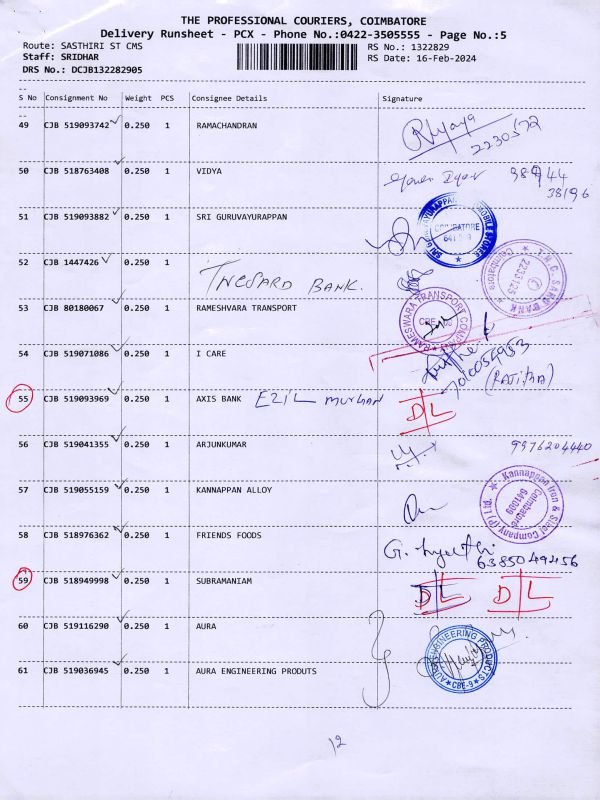 THE PROFESSIONAL COURIERS, COIMBATORE
Delivery Runsheet - PCX - Phone No.:0422-3505555 - Page No.:5
Route: SASTHIRI ST CMS RS No.: 1322829
Staff: SRIDHAR RS Date: 16-Feb-2024
DRS No.: DCJB132282905
S No Consignment No Weight PCS Consignee Details Signature
49 CJB 519093742 0.250 1 RAMACHANDRAN
2230572
50 CJB 518763408 0.250 1 VIDYA
38196
51 CJB 519093882 0.250 1 SRI GURUVAYURAPPAN
COIMBATORE
52 CJB 1447426 0.250 1
BANK.
T.H.C. SARD BANK
Coimbatore
53 CJB 80180067 0.250 1 RAMESHVARA TRANSPORT
RAMESWARA TRANSPORT COMPANY
54 CJB 519071086 0.250 1 I CARE
55 CJB 519093969 0.250 1 AXIS BANK EZIL MURUGAN D L
56 CJB 519041355 0.250 1 ARJUNKUMAR 9976204440
57 CJB 519055159 0.250 1 KANNAPPAN ALLOY
Kannappan Iron & Steel Company (P) Ltd.
Coimbatore
641009
58 CJB 518976362 0.250 1 FRIENDS FOODS
6385049456
59 CJB 518949998 0.250 1 SUBRAMANIAM D L D L
60 CJB 519116290 0.250 1 AURA
61 CJB 519036945 0.250 1 AURA ENGINEERING PRODUTS
AURA ENGINEERING PRODUCTS
CBE-9
12